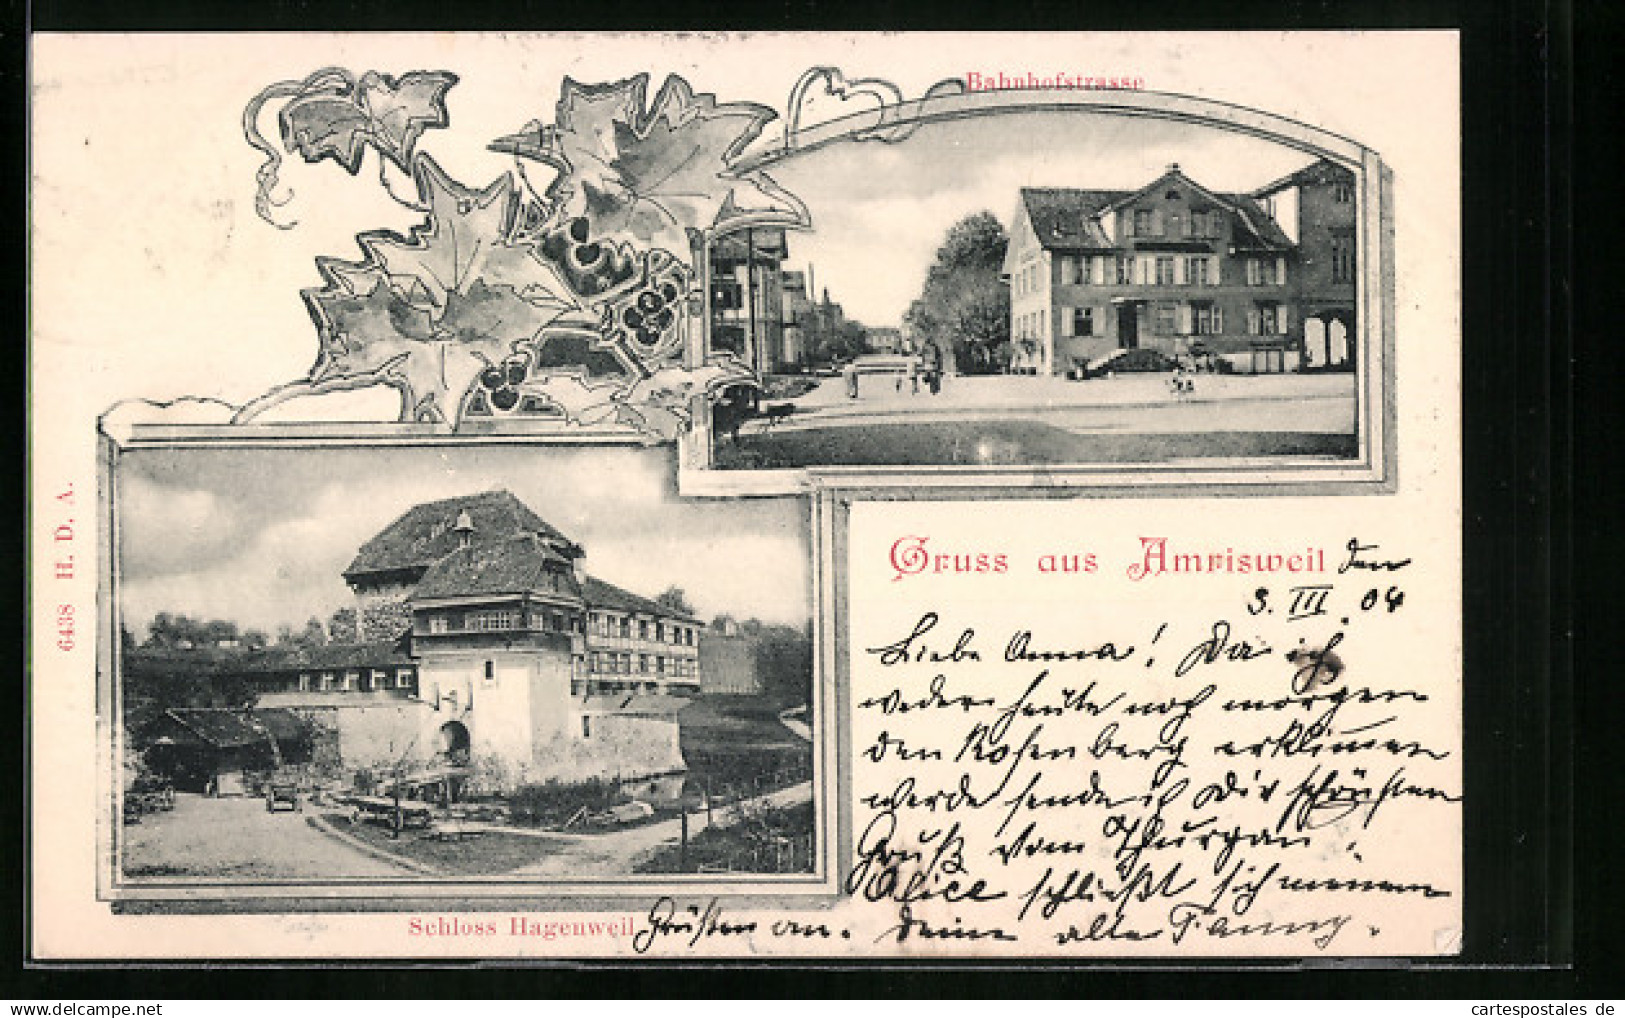 Bahnhofstrasse
6438 H. D. A.
Gruss aus Amrisweil den
3. III. 04
Liebe Anna! Da ich
weder heute noch morgen
den Rosenberg erklimmen
werde sende ich Dir schönsten
Gruß vom Thurgau.
Alice schließt sich meinen
Schloss Hagenweil Grüßen an. Deine alte Fanny.
cartespostales de